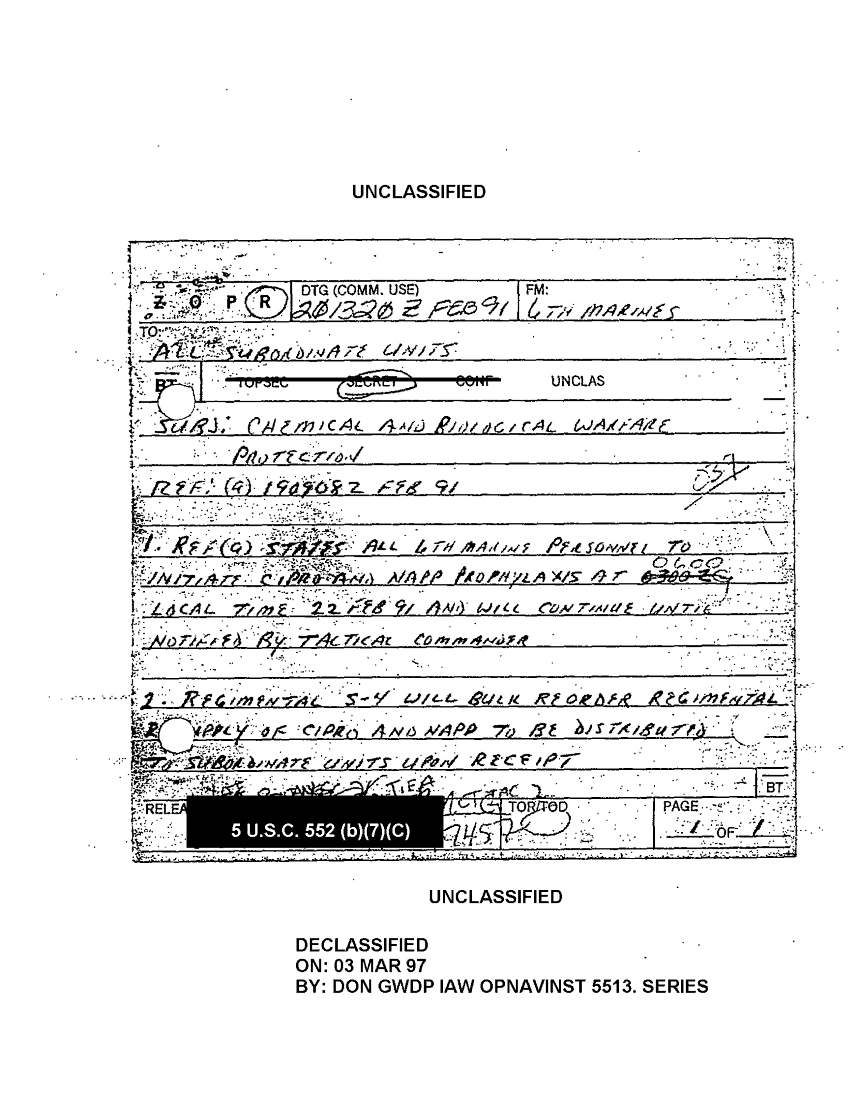 UNCLASSIFIED
Z O P R DTG (COMM. USE) FM:
201320 Z FEB 91 6TH MARINES
TO:
ALL SUBORDINATE UNITS
BT TOPSEC SECRET CONF UNCLAS
SUBJ: CHEMICAL AND BIOLOGICAL WARFARE
PROTECTION
037
REF: (A) 190908Z FEB 91
1. REF(A) STATES ALL 6TH MARINE PERSONNEL TO
0600
INITIATE CIPRO AND NAPP PROPHYLAXIS AT
LOCAL TIME 22 FEB 91 AND WILL CONTINUE UNTIL
NOTIFIED BY TACTICAL COMMANDER
2. REGIMENTAL S-4 WILL BULK REORDER REGIMENTAL
OF CIPRO AND NAPP TO BE DISTRIBUTED
TO SUBORDINATE UNITS UPON RECEIPT
BT
RELEA TOR/TOD PAGE
5 U.S.C. 552 (b)(7)(C) 1 OF 1
UNCLASSIFIED
DECLASSIFIED
ON: 03 MAR 97
BY: DON GWDP IAW OPNAVINST 5513. SERIES